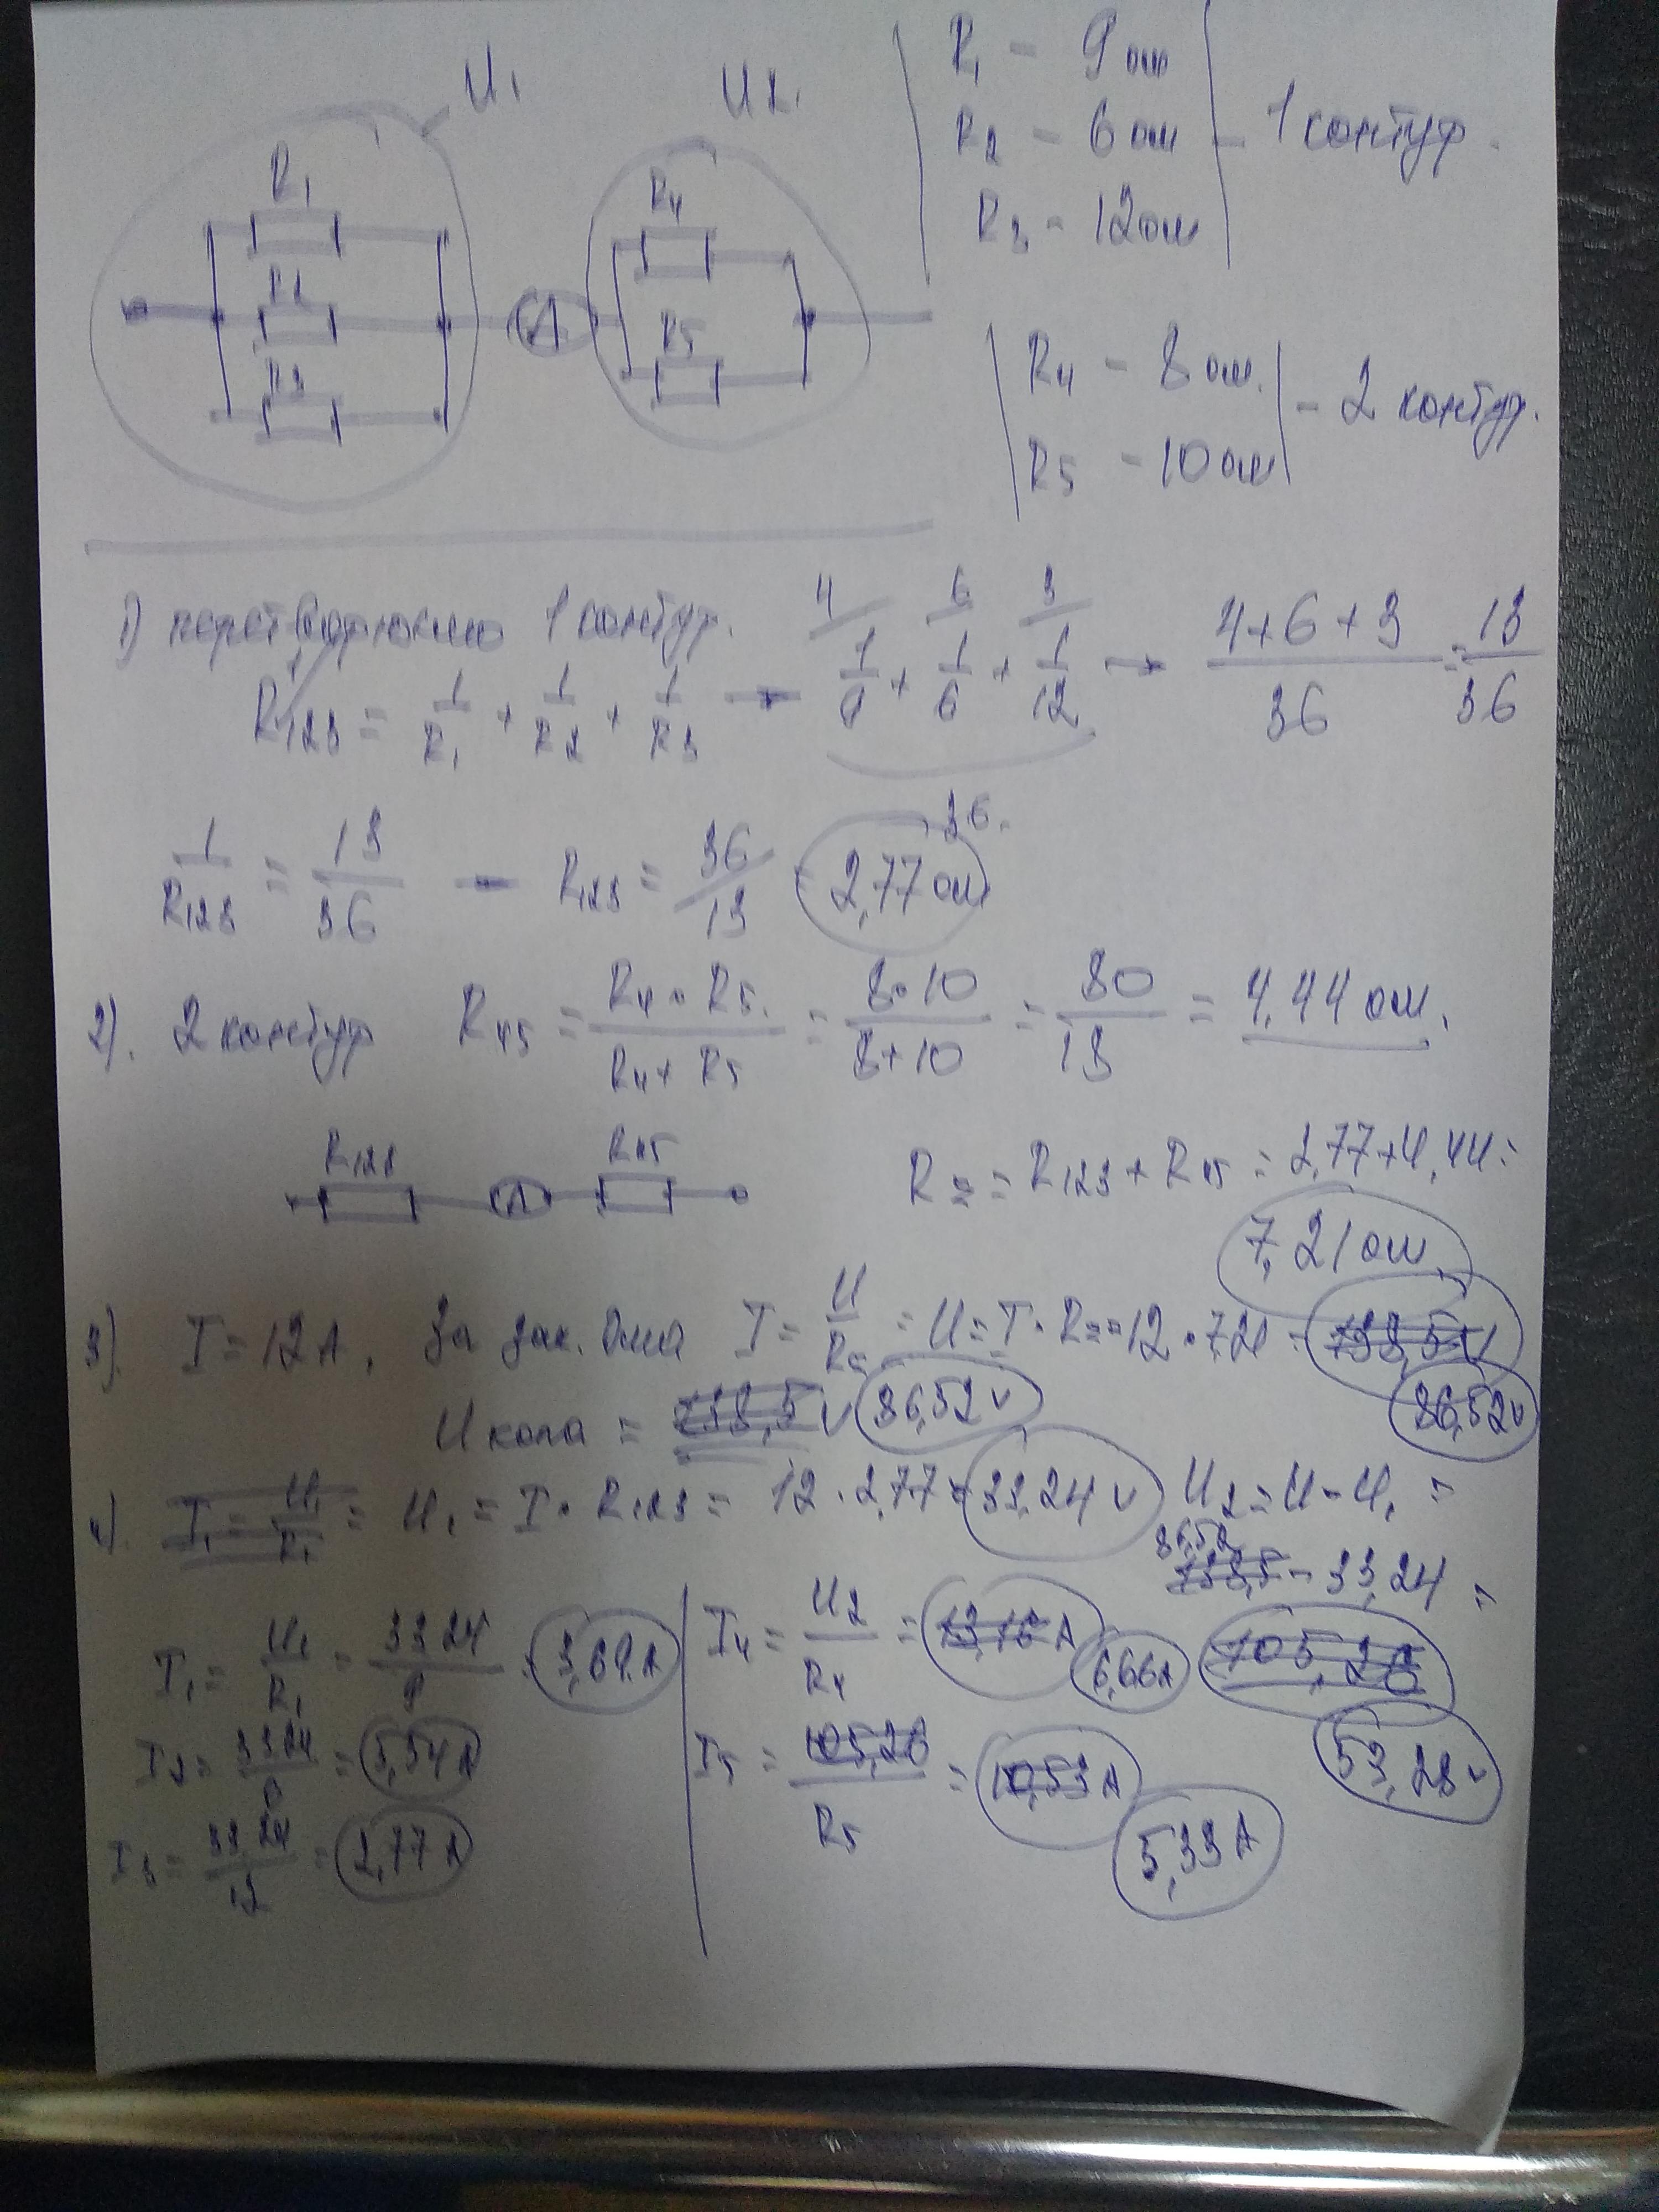 U1
U2.
R1 - 9 ом
R2 - 6 ом - 1 контур.
R3 - 12 ом
R1
R2
R3
A
R4
R5
R4 - 8 ом.
R5 - 10 ом - 2 контур.
1) перетворюємо 1 контур.
1/R123 = 1/R1 + 1/R2 + 1/R3 → 4/ 6/ 3/ 1/9 + 1/6 + 1/12 → (4+6+3)/36 = 13/36
1/R123 = 13/36 - R123 = 36/13 2,77 ом
36.
2). 2 контур R45 = (R4 · R5.)/(R4 + R5) = (8·10)/(8+10) = 80/18 = 4,44 ом.
R123 A R45
R= = R123 + R45 = 2,77+4,44=
7,21 ом
3). I = 12 A. За зак. Ома I = U/R= = U = I · R= = 12 · 7,21 = 133,5 V
86,52 v
U кола = 133,5 V 86,52 v
4). I1 = U1/R1 = U1 = I · R123 = 12 · 2,77 = 33,24 v U2 = U - U1 =
86,52
133,5 - 33,24 =
105,26
53,28 v
I1 = U1/R1 = 33 24/9 = 3,69 A
I2 = 33 24/6 = 5,54 A
I3 = 33 24/12 = 2,77 A
I4 = U2/R4 = 13,16 A 6,66 A
I5 = 105,26/R5 = 10,53 A
5,33 A